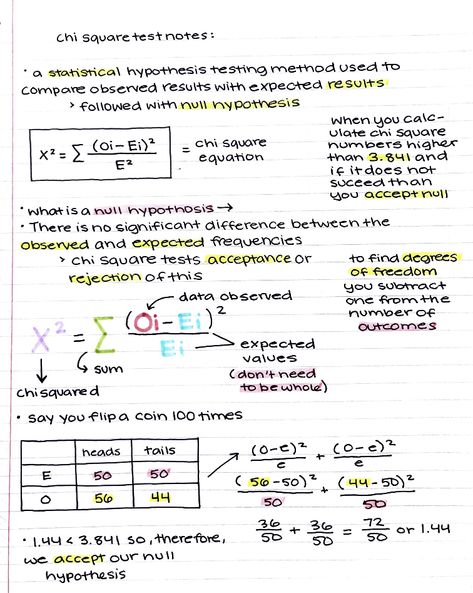 chi square test notes:
• a statistical hypothesis testing method used to
compare observed results with expected results
> followed with null hypothesis
X² = Σ (Oi-Ei)² / E² = chi square equation
when you calc-
ulate chi square
numbers higher
than 3.841 and
if it does not
suceed than
you accept null
• what is a null hypothosis →
• There is no significant difference between the
observed and expected frequencies
> chi square tests acceptance or
rejection of this
to find degrees
of freedom
you subtract
one from the
number of
outcomes
data observed
X² = Σ (Oi-Ei)² / Ei
expected
values
(don't need
to be whole)
sum
chi squared
• say you flip a coin 100 times
heads tails
E 50 50
O 56 44
(o-e)² / e + (o-e)² / e
(56-50)² / 50 + (44-50)² / 50
36/50 + 36/50 = 72/50 or 1.44
• 1.44 < 3.841 so, therefore,
we accept our null
hypothesis